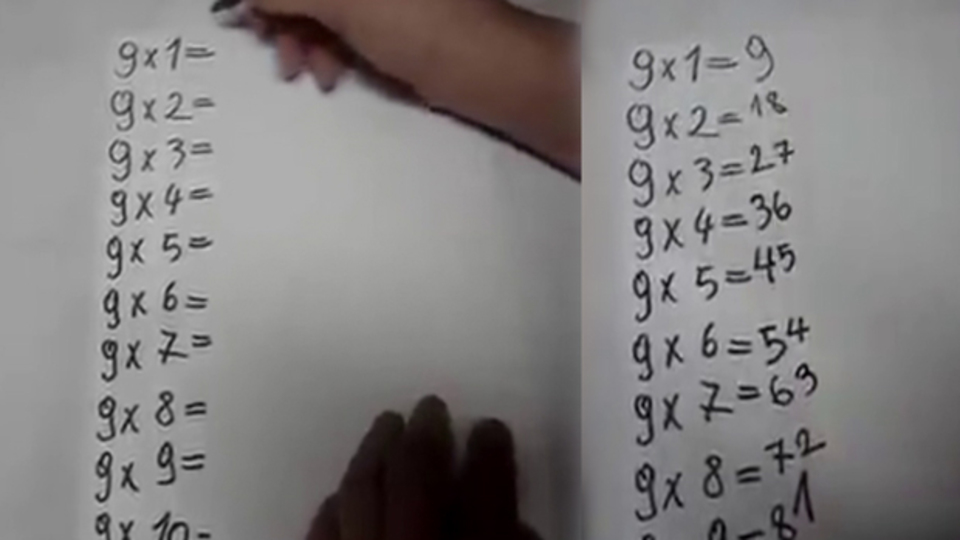 9x1=
9x2=
9x3=
9x4=
9x5=
9x6=
9x7=
9x8=
9x9=
9x10=
9x1=9
9x2=18
9x3=27
9x4=36
9x5=45
9x6=54
9x7=63
9x8=72
9=81